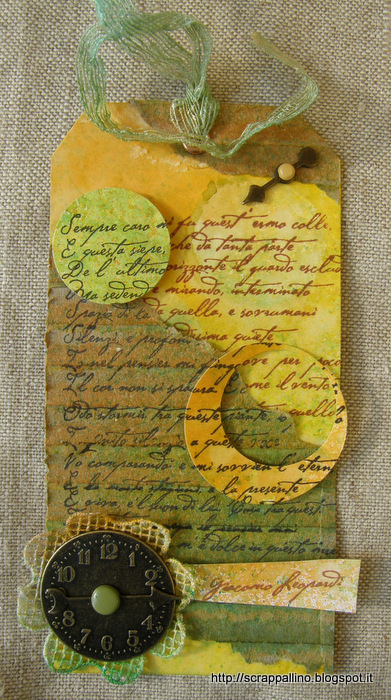 Sempre caro mi fu quest' ermo colle,
E questa siepe, che da tanta parte
De l' ultimo orizzonte il guardo esclud
Ma sedendo mirando, interminato
Spazio di là da quella, e sovrumani
Silenzi, e profon dissima quiete
nel pensier mi per poco
Il cor non si spaura. ome il vento
Odo stormir tra queste piante,
silenzio a questa voce
Vo comparando: e mi sovvien l' etern
E le morte stagioni, e la presente
E viva, e il suon di lei. Così tra quest
è dolce in questo mare
12 1 2 3 4 5 6 7 8 9 10 11
Giacomo Leopardi
http://scrappallino.blogspot.it